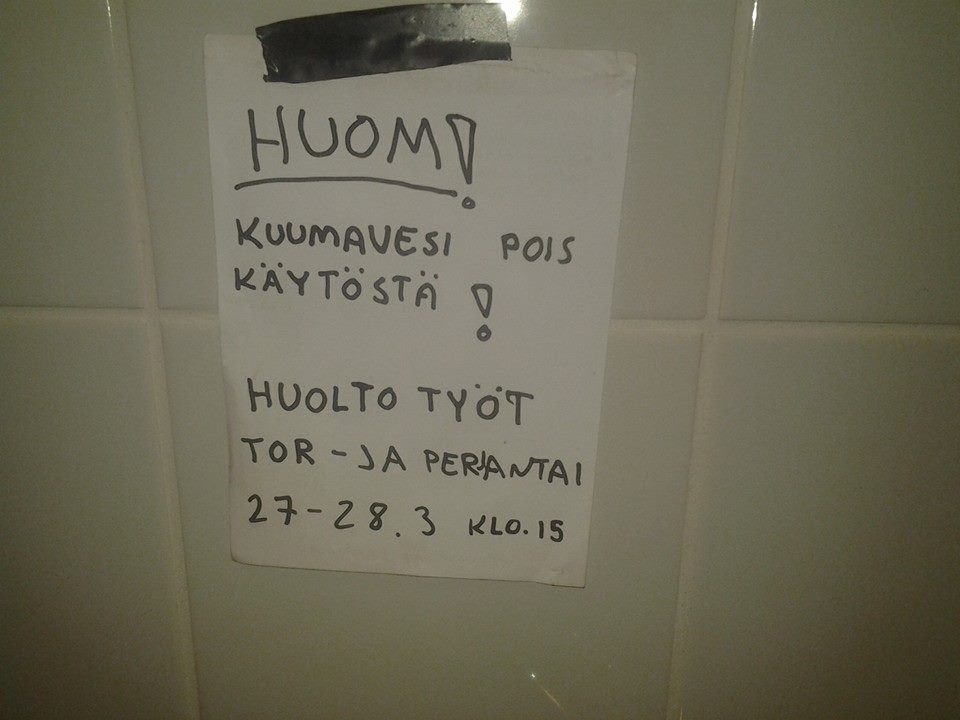 HUOM!
KUUMAVESI POIS
KÄYTÖSTÄ!
HUOLTO TYÖT
TOR - JA PERJANTAI
27-28.3 KLO.15